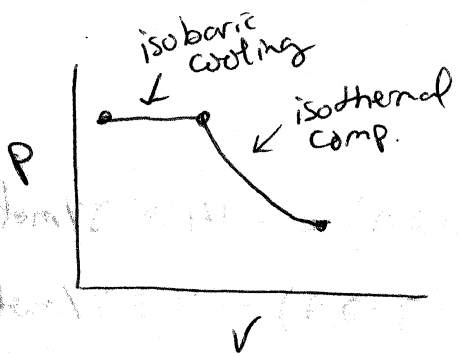 isobaric
cooling
isothermal
comp.
P
V